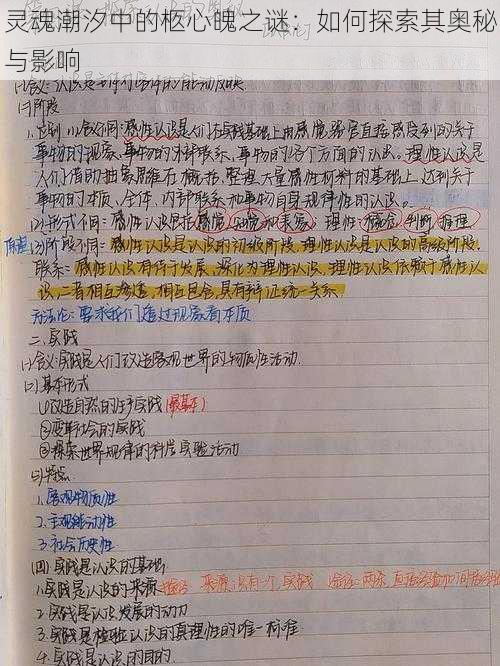 灵魂潮汐中的柩心魄之谜：如何探索其奥秘
与影响
(2)阶段
1.区别 (1)含义不同:感性认识是人们在实践基础上由感觉器官直接感受到的关于
事物的现象、事物的外部联系、事物的各个方面的认识。理性认识是
人们借助抽象思维在概括、整理大量感性材料的基础上,达到关于
事物的本质、全体、内部联系和事物自身规律性的认识。
(2)形式不同:感性认识包括感觉、知觉和表象;理性:概念、判断、推理
(3)阶段不同:感性认识是认识的初级阶段,理性认识是认识的高级阶段。
联系:感性认识有待于发展、深化为理性认识,理性认识依赖于感性认
识,二者相互渗透,相互包含,具有辩证统一关系
方法论:要求我们透过现象看本质
二.实践
(一)含义:实践是人们改造客观世界的物质性活动.
(二)基本形式
①改造自然的生产实践(最基本)
②变革社会的实践
③探索世界规律的科学实验活动
(三)特点
1.客观物质性
2.主观能动性
3.社会历史性
(四)实践是认识的基础
1.实践是认识的来源 来源只有一个实践 两条 直接经验和间接经验
2.实践是认识发展的动力
3.实践是检验认识的真理性的唯一标准
4.实践是认识的目的